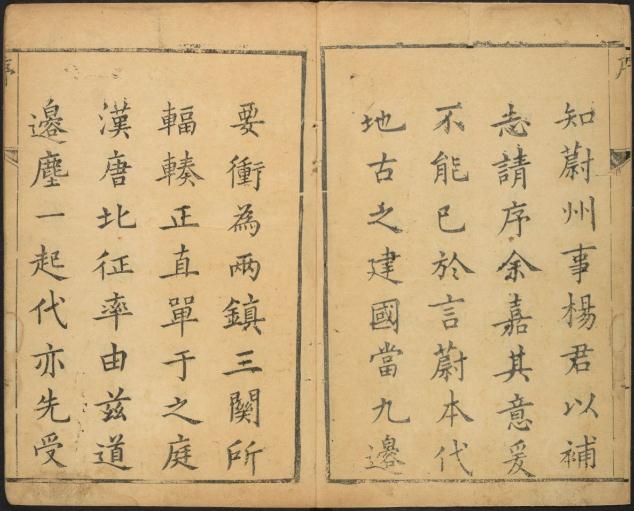 知蔚州事楊君以補
志請序余嘉其意爰
不能已於言蔚本代
地古之建國當九邊
要衝為兩鎮三關所
輻輳正直單于之庭
漢唐北征率由茲道
邊塵一起代亦先受
序